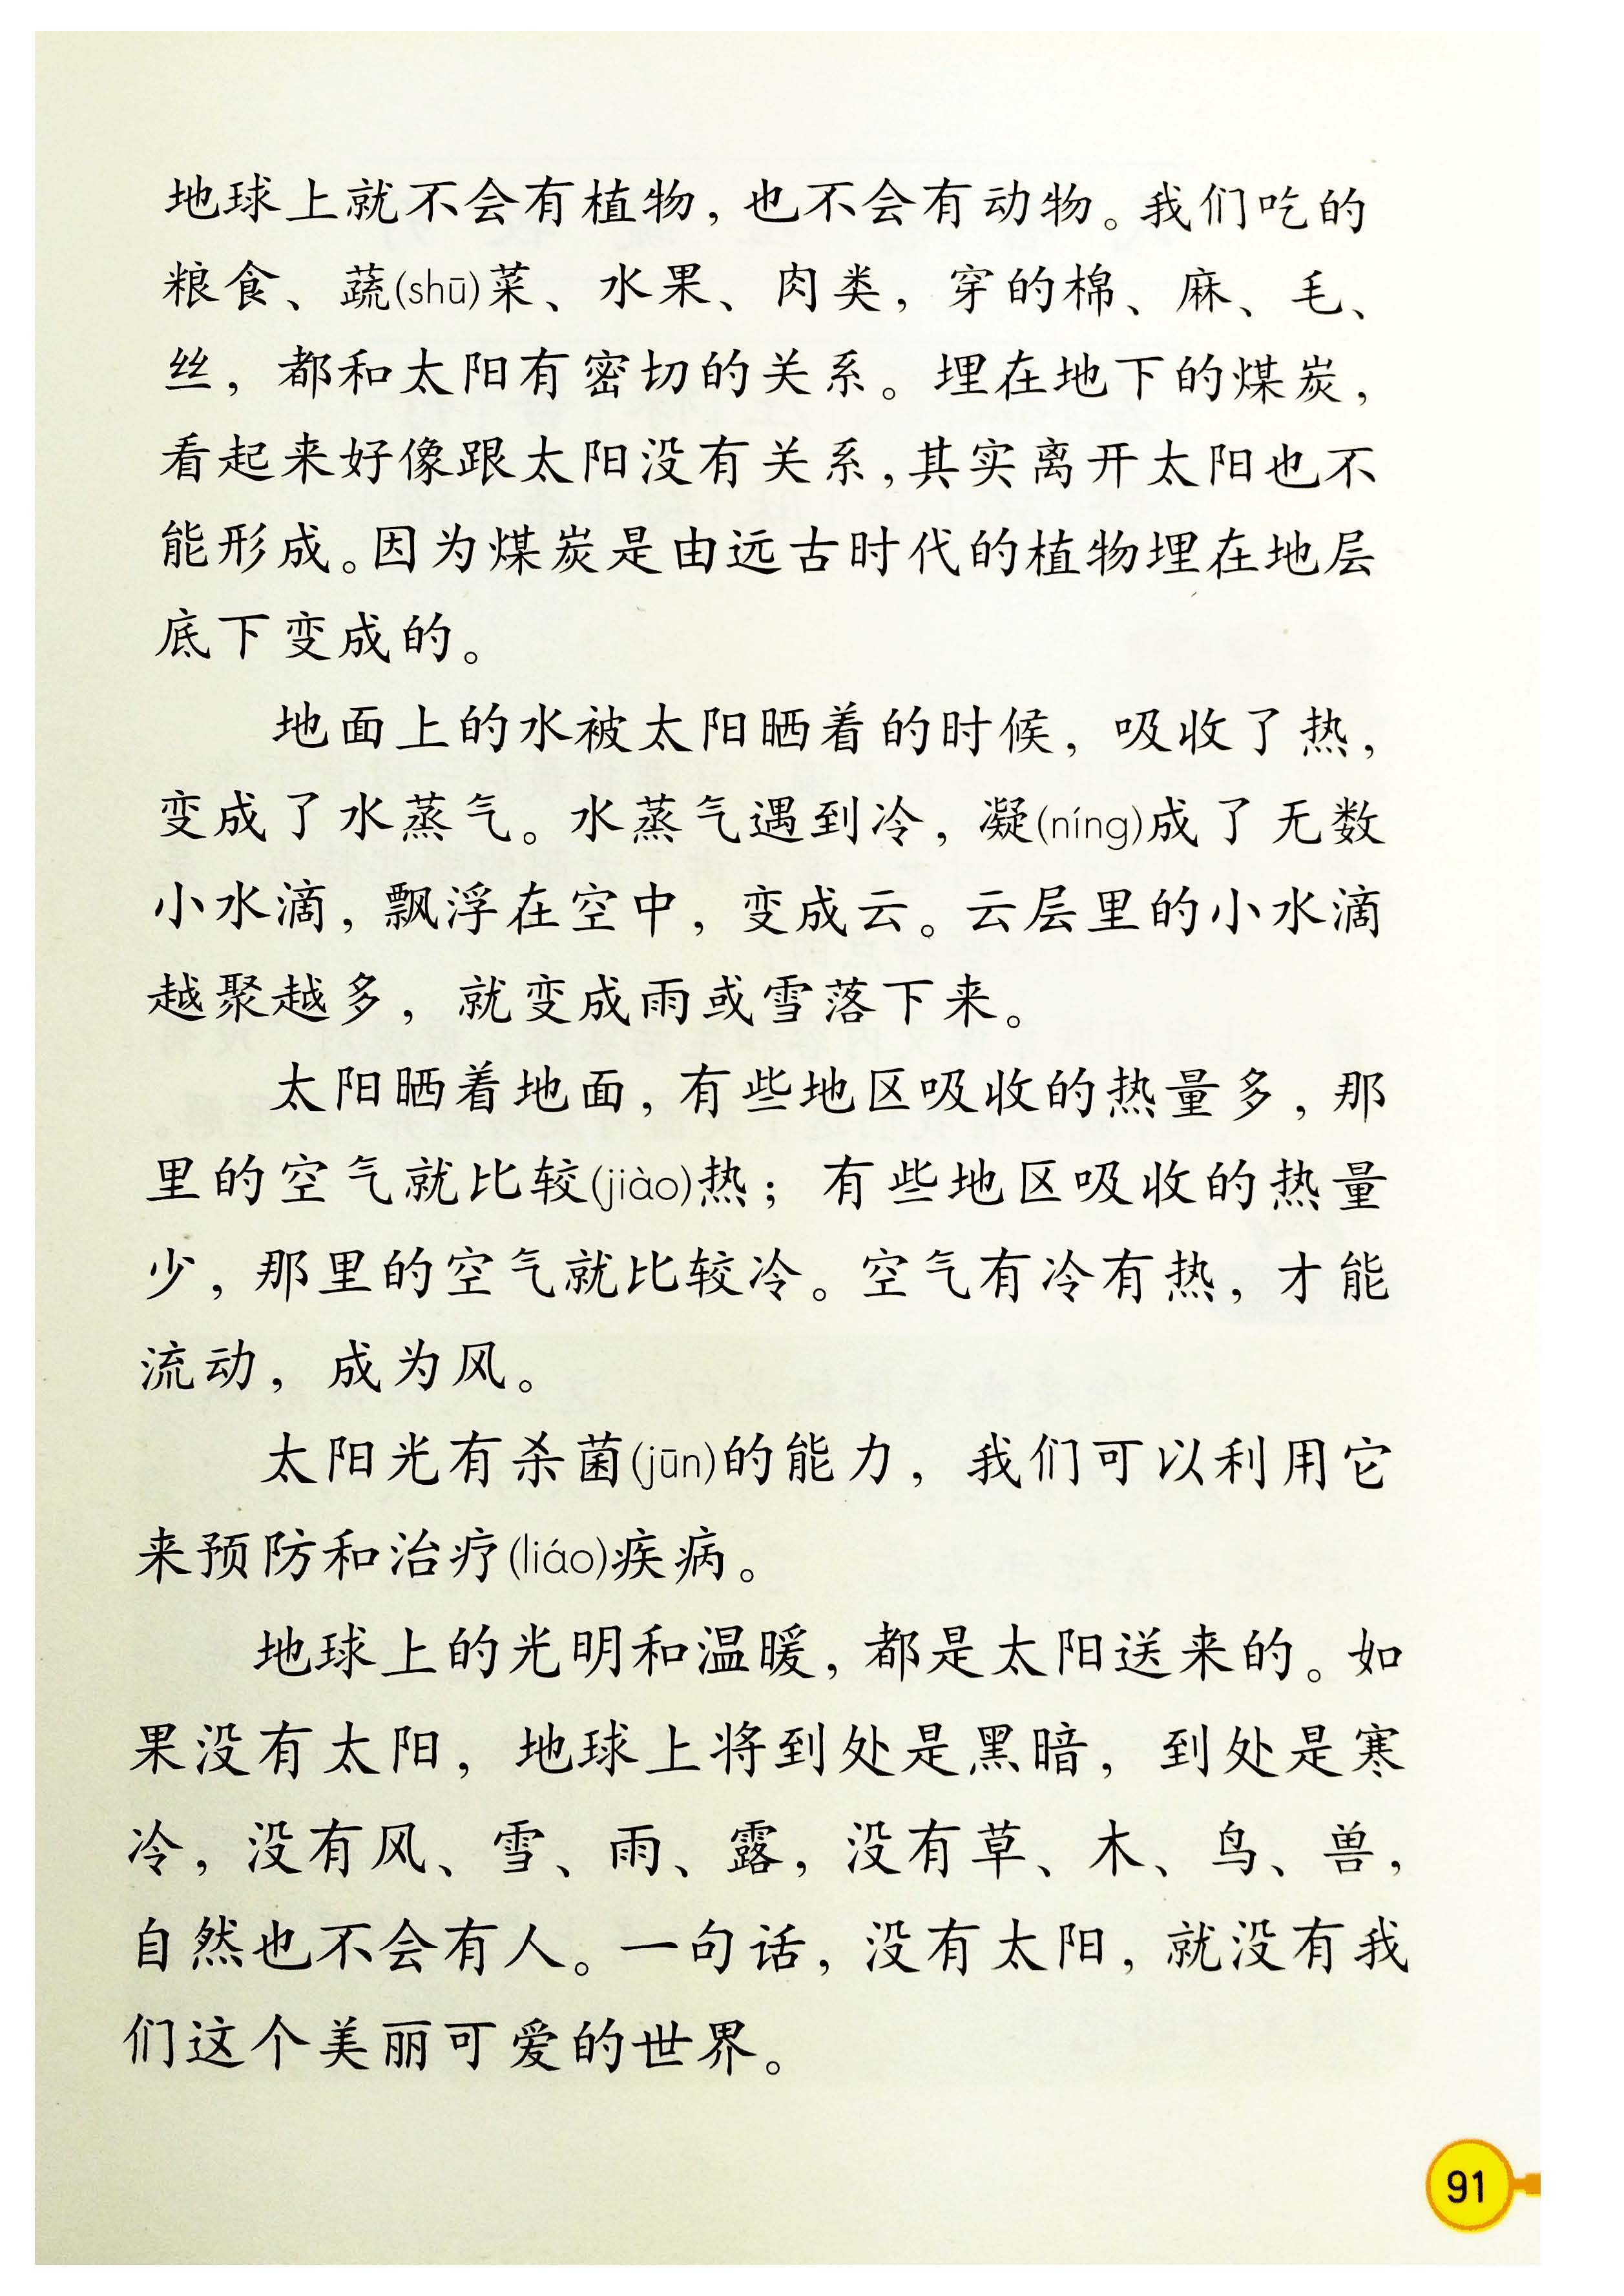 地球上就不会有植物，也不会有动物。我们吃的
粮食、蔬(shū)菜、水果、肉类，穿的棉、麻、毛、
丝，都和太阳有密切的关系。埋在地下的煤炭，
看起来好像跟太阳没有关系，其实离开太阳也不
能形成。因为煤炭是由远古时代的植物埋在地层
底下变成的。
地面上的水被太阳晒着的时候，吸收了热，
变成了水蒸气。水蒸气遇到冷，凝(níng)成了无数
小水滴，飘浮在空中，变成云。云层里的小水滴
越聚越多，就变成雨或雪落下来。
太阳晒着地面，有些地区吸收的热量多，那
里的空气就比较(jiào)热；有些地区吸收的热量
少，那里的空气就比较冷。空气有冷有热，才能
流动，成为风。
太阳光有杀菌(jūn)的能力，我们可以利用它
来预防和治疗(liáo)疾病。
地球上的光明和温暖，都是太阳送来的。如
果没有太阳，地球上将到处是黑暗，到处是寒
冷，没有风、雪、雨、露，没有草、木、鸟、兽，
自然也不会有人。一句话，没有太阳，就没有我
们这个美丽可爱的世界。
91